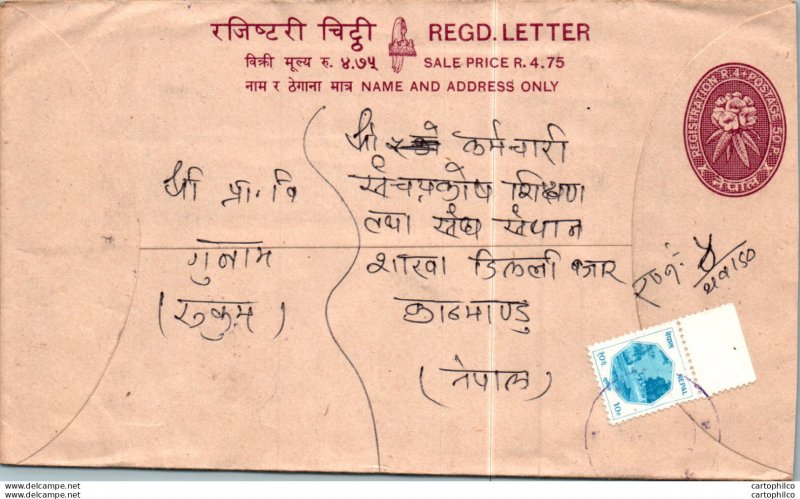 रजिष्टरी चिट्ठी REGD. LETTER
विक्री मूल्य रु. ४.७५ SALE PRICE R. 4.75
नाम र ठेगाना मात्र NAME AND ADDRESS ONLY
REGISTRATION R.4+POSTAGE 50P.
नेपाल
श्री प्रा. वि
गुनाम
(रुकुम)
श्री कर्मचारी
संचयकोष शिक्षण
तथा संघ संस्थान
शाखा डिल्ली बजार
काठमाण्डु
(नेपाल)
नेपाल NEPAL
१०प 10P
www.delcampe.net
cartophilco
cartophilco